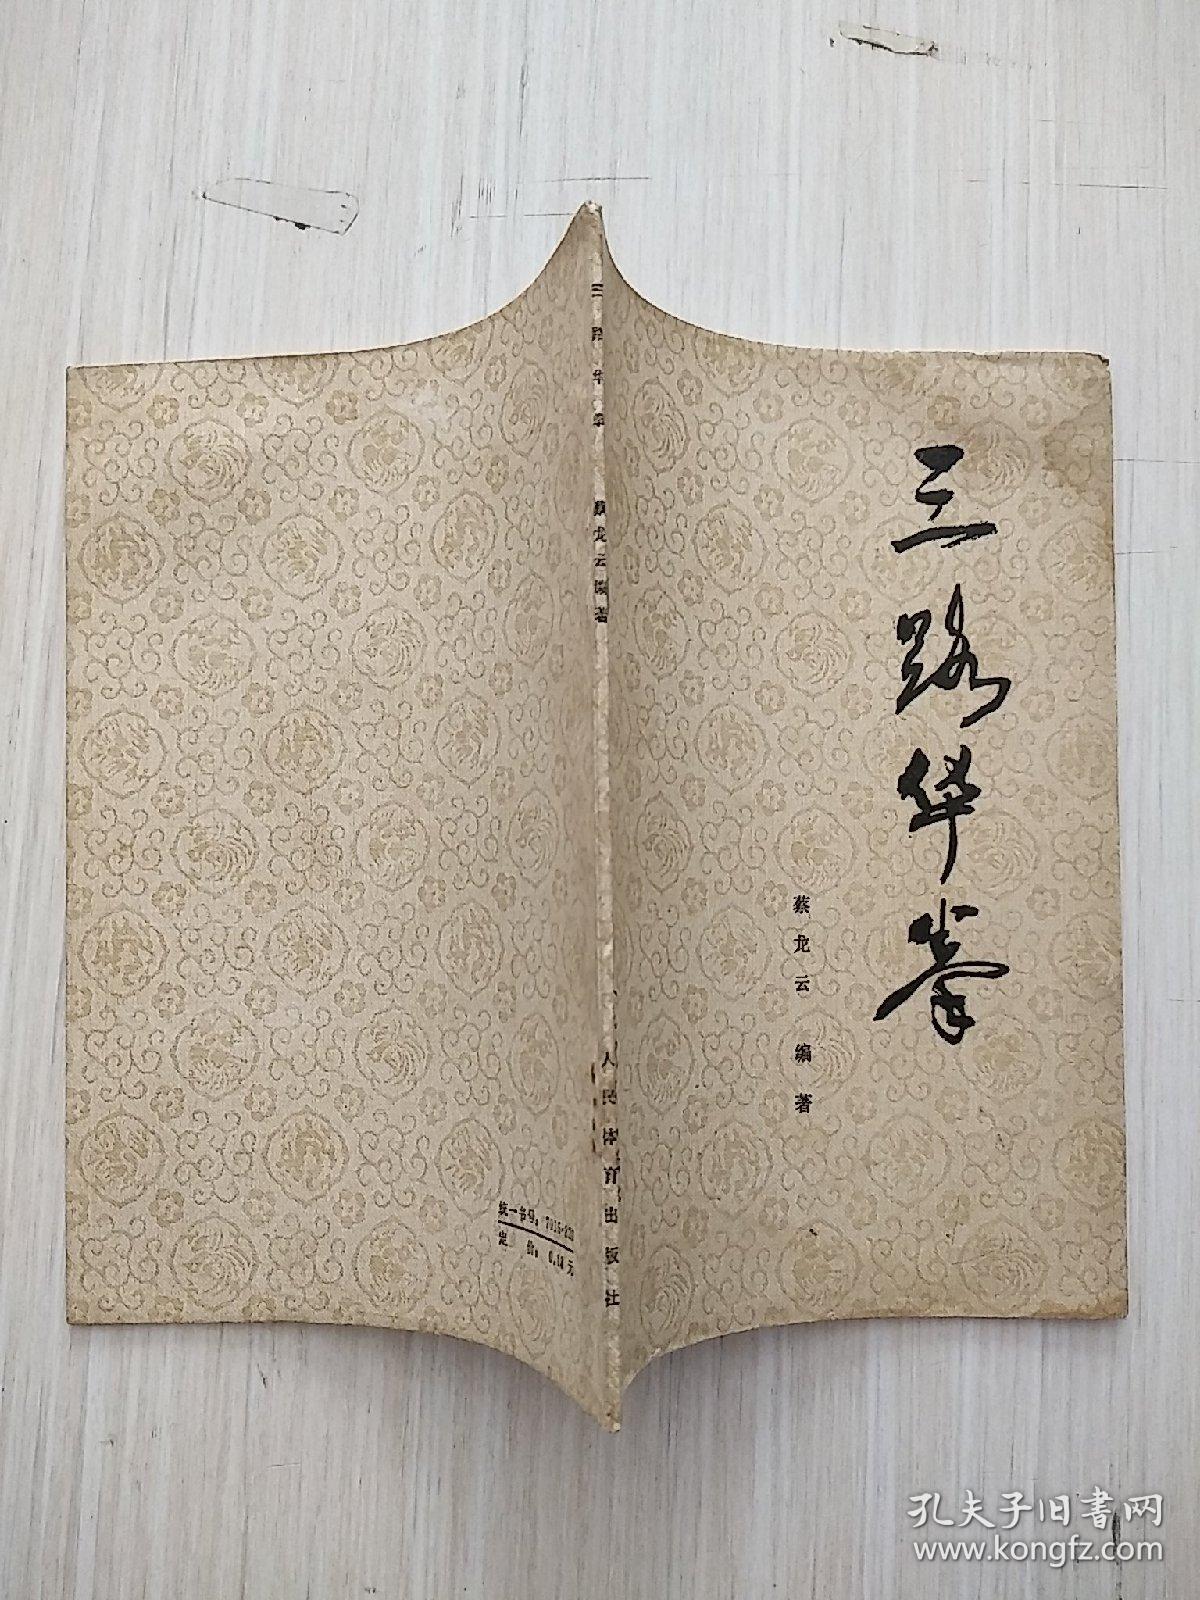 三路华拳
蔡龙云 编著
三路华拳 蔡龙云编著 人民体育出版社
统一书号：7015·
定 价：0.14元
孔夫子旧书网
www.kongfz.com